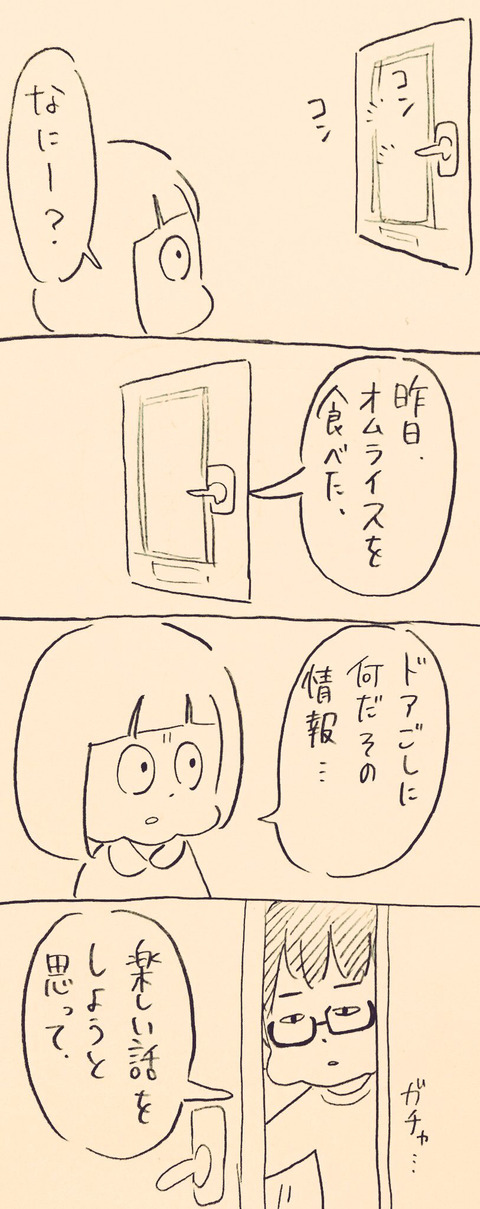 コン
コン
なにー?
昨日.
オムライスを
食べた、
ドアごしに
何だその
情報…
ガチャ…
楽しい話を
しようと
思って.